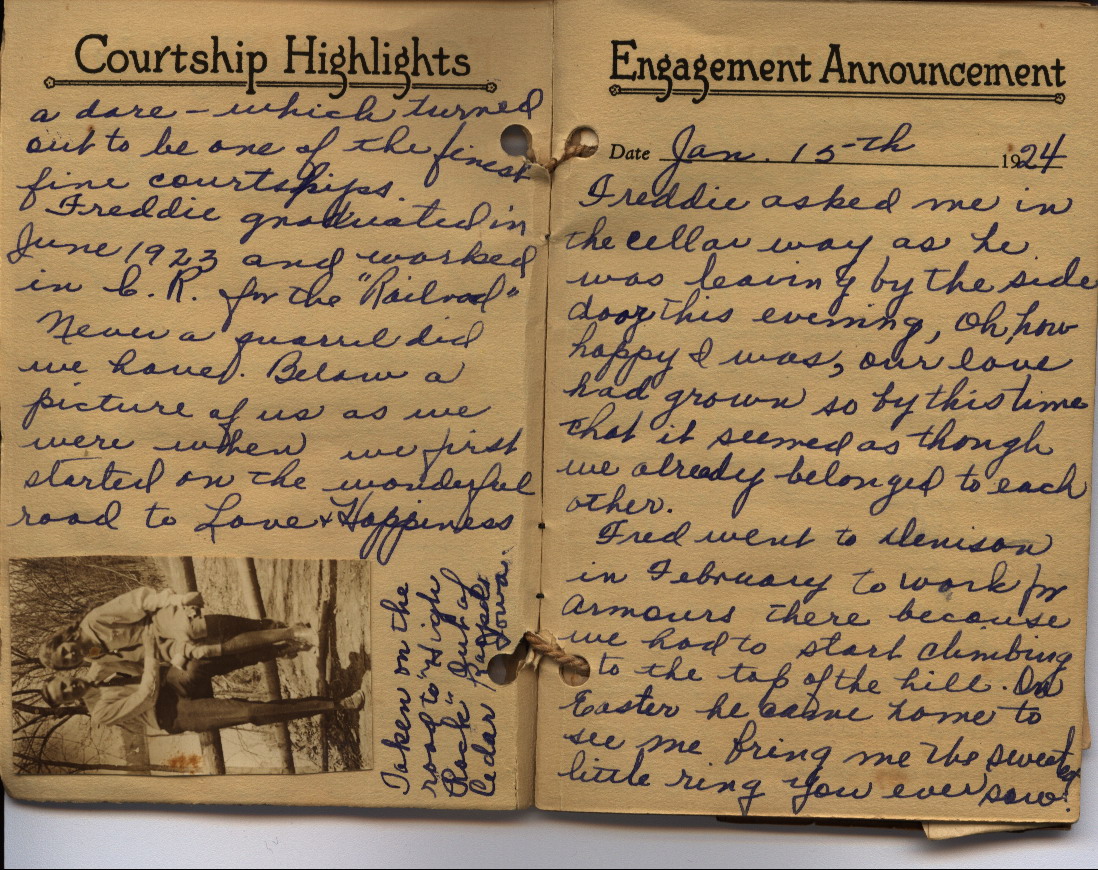 Courtship Highlights
a dare - which turned
out to be one of the finest
fine courtships.
Freddie graduated in
June 1923 and worked
in C. R. for the "Railroad"
Never a quarrel did
we have. Below a
picture of us as we
were when we first
started on the wonderful
road to Love & Happiness
Taken on the
road to "High
Rock" Out of
Cedar Rapids
Iowa.
Engagement Announcement
Date Jan. 15th 1924
Freddie asked me in
the cellar way as he
was leaving by the side
door this evening, Oh, how
happy I was, our love
had grown so by this time
that it seemed as though
we already belonged to each
other.
Fred went to Denison
in February to work for
Armours there because
we had to start climbing
to the top of the hill. On
Easter he came home to
see me bring me the sweetest
little ring you ever saw!